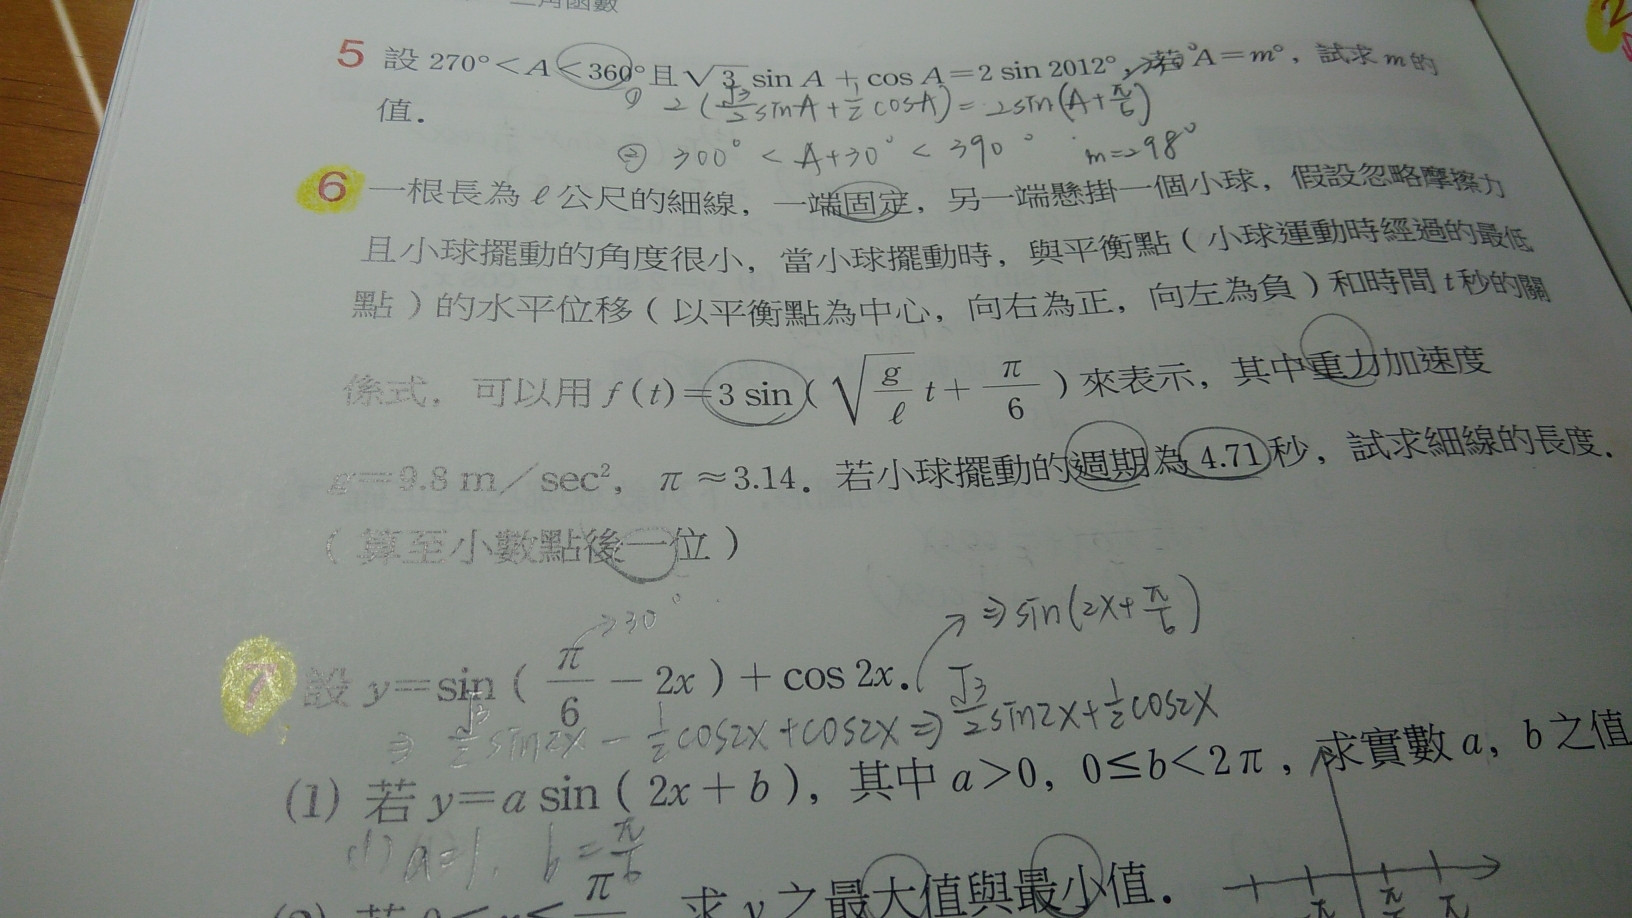 三角函數
5 設 270°＜A＜360°且√3 sin A＋cos A＝2 sin 2012°，若 A＝m°，試求 m 的
值．
① 2(√3/2 sinA+1/2 cosA)=2sin(A+π/6)
② 300°<A+30°<390° m=298°
6 一根長為 ℓ 公尺的細線，一端固定，另一端懸掛一個小球，假設忽略摩擦力
且小球擺動的角度很小，當小球擺動時，與平衡點（小球運動時經過的最低
點）的水平位移（以平衡點為中心，向右為正，向左為負）和時間 t 秒的關
係式，可以用 f(t)＝3 sin(√(g/ℓ) t＋π/6)來表示，其中重力加速度
g＝9.8 m／sec²，π≈3.14．若小球擺動的週期為 4.71 秒，試求細線的長度．
（算至小數點後一位）
→30° ⇒sin(2x+π/6)
7 設 y＝sin(π/6－2x)＋cos 2x．
⇒ √3/2 sin2x－1/2 cos2x+cos2x ⇒ √3/2 sin2x+1/2 cos2x
(1) 若 y＝a sin(2x＋b)，其中 a＞0，0≤b＜2π，求實數 a，b 之值
(1) a=1, b=π/6
求 y 之最大值與最小值．